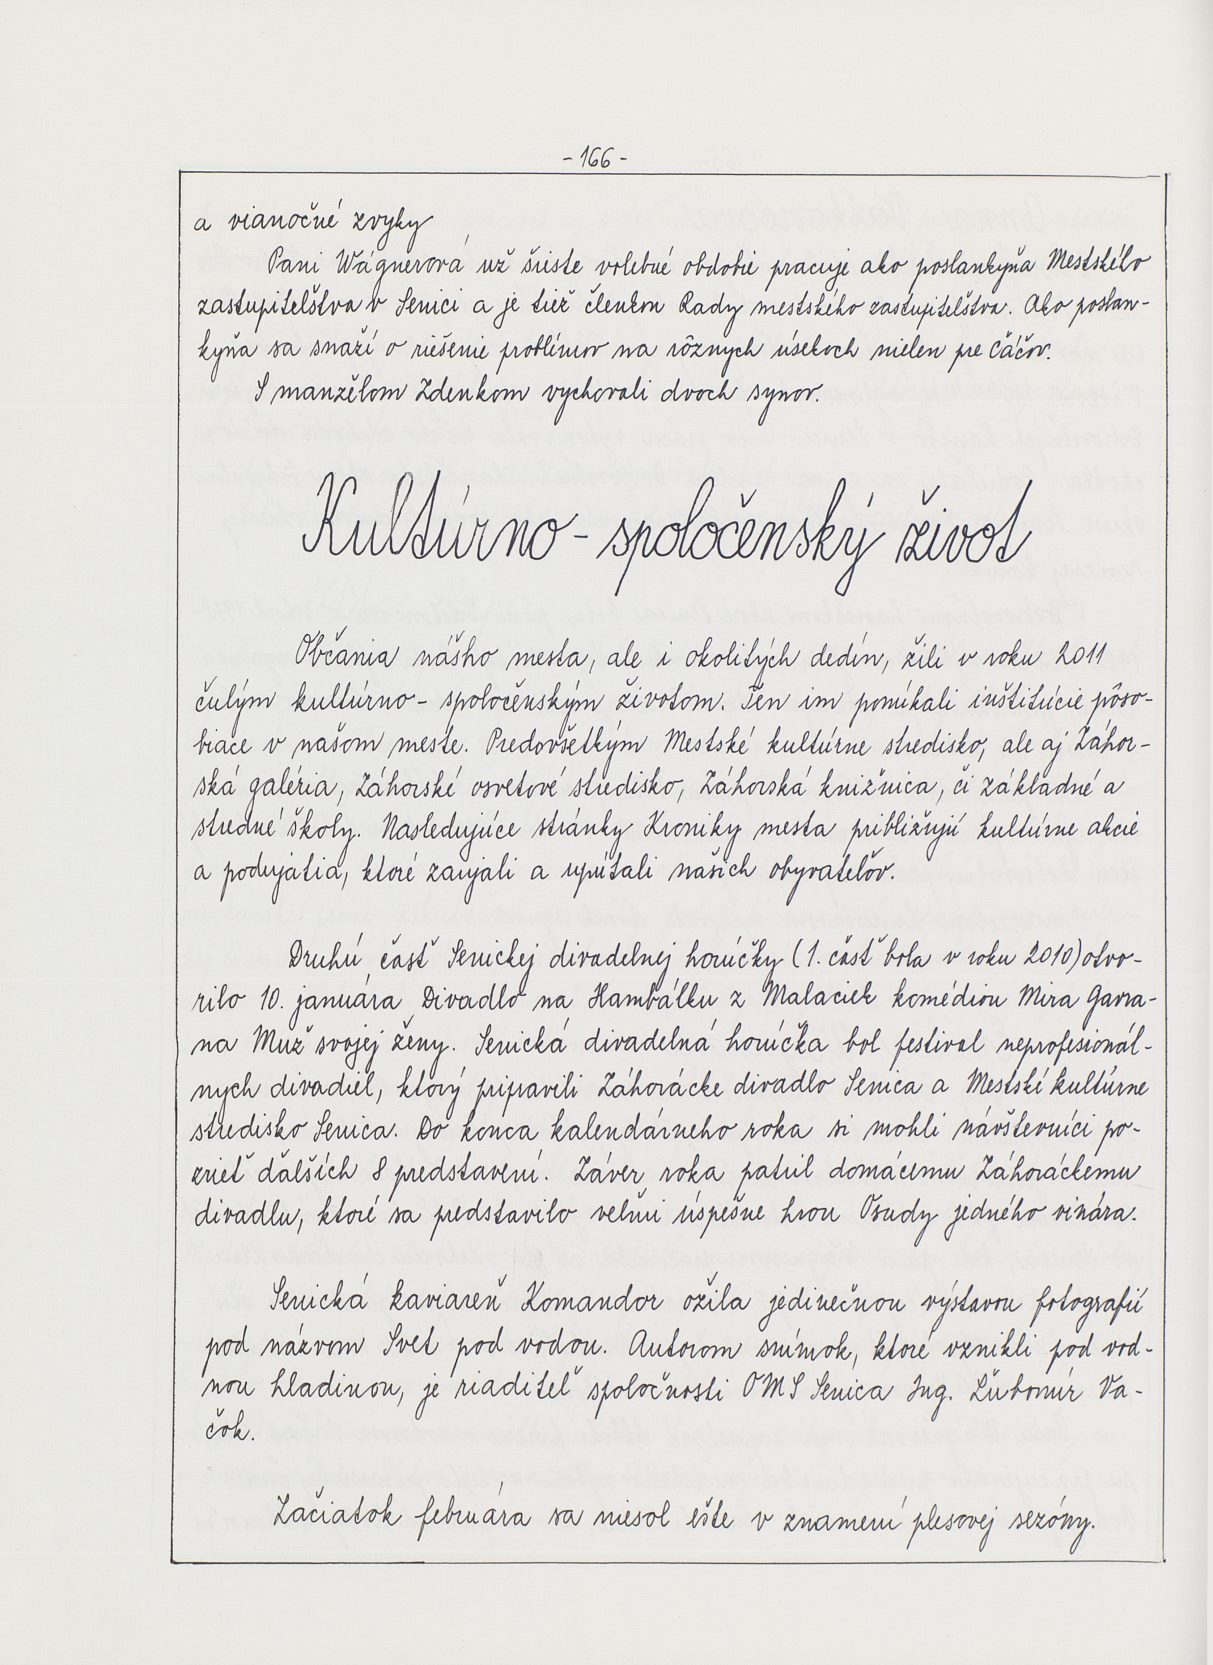 - 166 -
a vianočné zvyky
Pani Wágnerová už šieste volebné obdobie pracuje ako poslankyňa Mestského
zastupiteľstva v Senici a je tiež členkou Rady mestského zastupiteľstva. Ako poslan-
kyňa sa snaží o riešenie problémov na rôznych úsekoch nielen pre Čáčov.
S manželom Zdenkom vychovali dvoch synov.
Kultúrno - spoločenský život
Občania nášho mesta, ale i okolitých dedín, žili v roku 2011
čulým kultúrno - spoločenským životom. Ten im ponúkali inštitúcie pôso-
biace v našom meste. Predovšetkým Mestské kultúrne stredisko, ale aj Záhor-
ská galéria, Záhorské osvetové stredisko, Záhorská knižnica, či základné a
stredné školy. Nasledujúce stránky Kroniky mesta približujú kultúrne akcie
a podujatia, ktoré zaujali a upútali našich obyvateľov.
Druhú časť Senickej divadelnej horúčky (1. časť bola v roku 2010) otvo-
rilo 10. januára Divadlo na Hambálku z Malaciek komédiou Mira Gavra-
na Muž svojej ženy. Senická divadelná horúčka bol festival neprofesionál-
nych divadiel, ktorý pripravili Záhorácke divadlo Senica a Mestské kultúrne
stredisko Senica. Do konca kalendárneho roka si mohli návštevníci po-
zrieť ďalších 8 predstavení. Záver roka patril domácemu Záhoráckemu
divadlu, ktoré sa predstavilo veľmi úspešne hrou Osudy jedného vinára.
Senická kaviareň Komandor ožila jedinečnou výstavou fotografií
pod názvom Svet pod vodou. Autorom snímok, ktoré vznikli pod vod-
nou hladinou, je riaditeľ spoločnosti OMS Senica Ing. Ľubomír Va-
čok.
Začiatok februára sa niesol ešte v znamení plesovej sezóny.